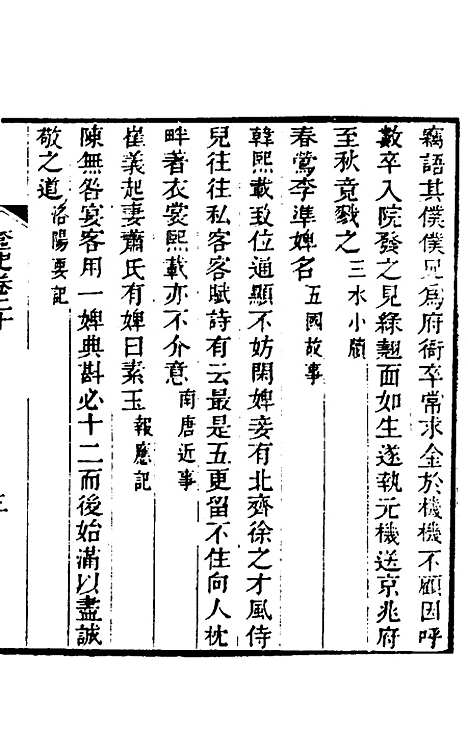 竊語其僕僕兄為府衙卒常求金於機機不顧因呼
數卒入院發之見綠翹面如生遂執元機送京兆府
至秋竟戮之三水小牘
春鶯李準婢名五國故事
韓熙載致位通顯不妨閑婢妾有北齊徐之才風侍
兒往往私客客賦詩有云最是五更留不住向人枕
畔著衣裳熙載亦不介意南唐近事
崔義起妻蕭氏有婢曰素玉報應記
陳無咎宴客用一婢典斟必十二而後始滿以盡誠
敬之道洛陽要記
史卷二十
三